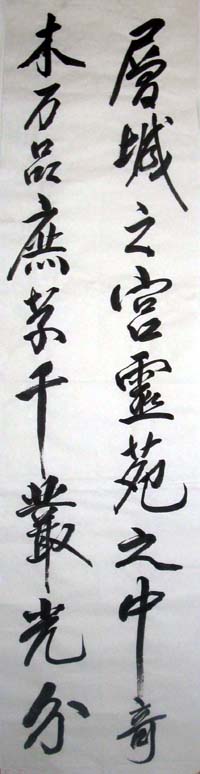 層城之宮靈苑之中奇
木万品庶草千叢光分